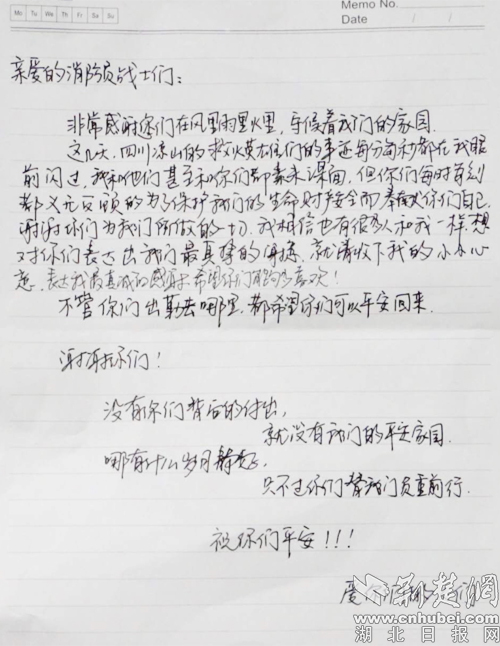 Memo No.
Mo Tu We Th Fr Sa Su
Date / /
亲爱的消防员战士们：
非常感谢你们在风里雨里火里，守候着我们的家园.
这几天，四川凉山的救火英雄们的事迹每分每秒都在我眼
前闪过，我和他们甚至和你们都素未谋面，但你们每时每刻
都义无反顾的为了保护我们的生命财产安全而奉献你们自己.
谢谢你们为我们所做的一切，我相信也有很多人和我一样，想
对你们表达出我们最真挚的谢意，就请收下我的小小心
意，表达我最真诚的感谢，希望你们能够喜欢！
不管你们出勤去哪里，都希望你们可以平安回来.
谢谢你们！
没有你们背后的付出，
就没有我们的平安家园.
哪有什么岁月静好，
只不过你们替我们负重前行.
祝你们平安！！！
爱你们的
荆楚网
www.cnhubei.com
湖北日报网